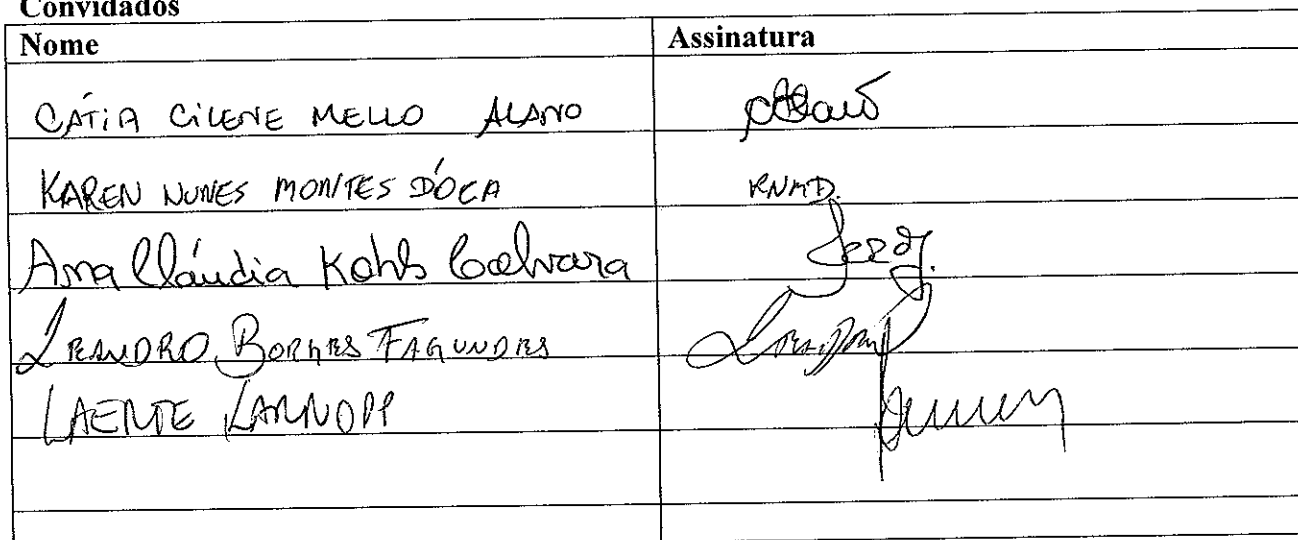 Convidados
Nome Assinatura
CÁTIA CILENE MELLO ALANO
KAREN NUNES MONTES D'OCA KNMD.
Ana Cláudia Kohls Colvara
LEANDRO BORGES FAGUNDES
LAERTE KARNOPP